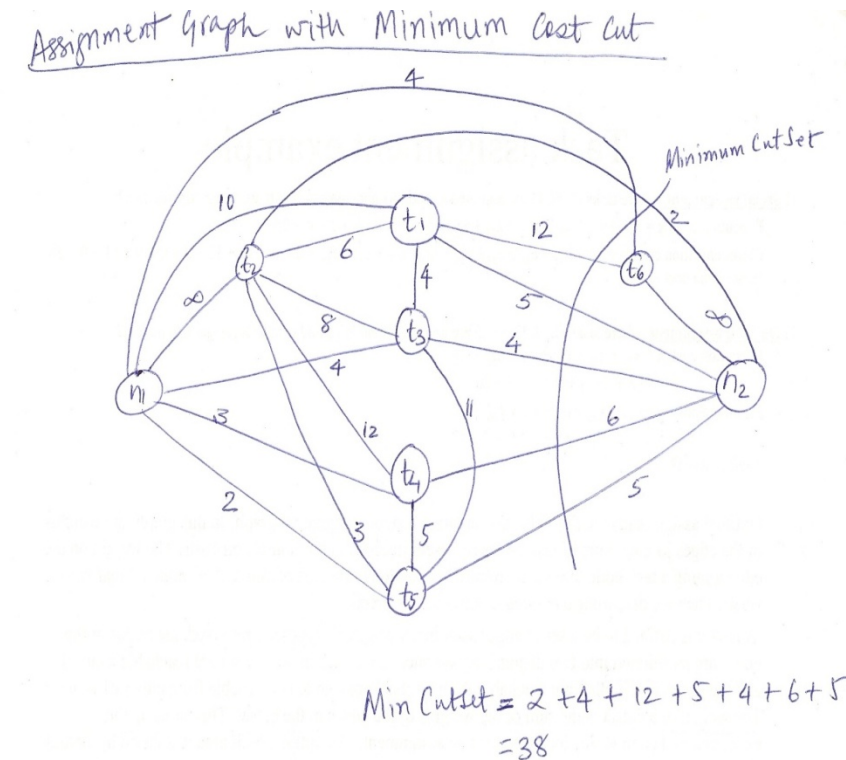 Assignment Graph with Minimum Cost Cut
4
Minimum CutSet
10
t1
12
2
t2
6
t6
4
∞
8
5
∞
t3
4
4
n1
n2
3
12
11
6
t4
2
3
5
5
t5
Min CutSet = 2 + 4 + 12 + 5 + 4 + 6 + 5
= 38